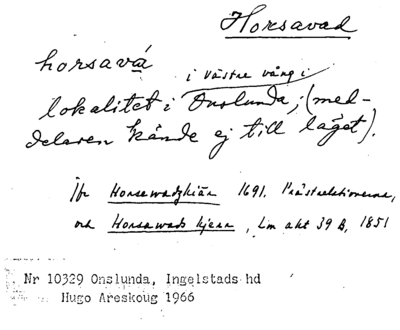 Horsavad
horsavá
i västre vång i
lokalitet i Onslunda; (med-
delaren kände ej till läget).
Jfr Horsewadzkiär 1691. Prästrelationerna,
och Horsawads kjerr, Lm akt 39 B, 1851
Nr 10329 Onslunda, Ingelstads hd
Hugo Areskoug 1966